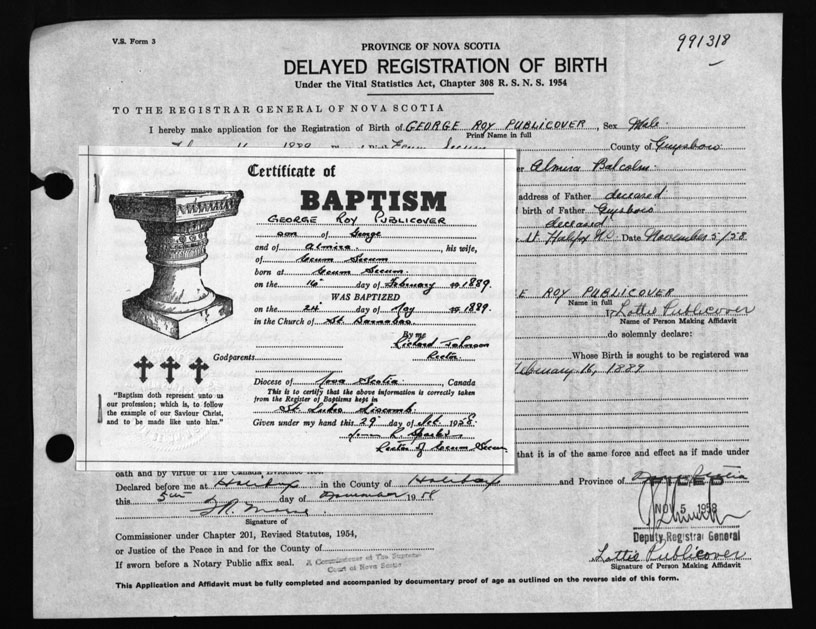 V.S. Form 3
991318
PROVINCE OF NOVA SCOTIA
DELAYED REGISTRATION OF BIRTH
Under the Vital Statistics Act, Chapter 308 R. S. N. S. 1954
TO THE REGISTRAR GENERAL OF NOVA SCOTIA
I hereby make application for the Registration of Birth of GEORGE ROY PUBLICOVER, Sex Male.
Print Name in full
County of Guysboro
Almira Balcolm
address of Father deceased
birth of Father Guysboro
deceased
Date November 5/58
ROY PUBLICOVER
Name in full
Lottie Publicover
Name of Person Making Affidavit
do solemnly declare:
Whose Birth is sought to be registered was
February 16, 1889
that it is of the same force and effect as if made under
oath and by virtue of The Canada Evidence
Declared before me at Halifax in the County of Halifax and Province of Nova Scotia
this 5th day of November 1958
Signature of
Commissioner under Chapter 201, Revised Statutes, 1954,
or Justice of the Peace in and for the County of
If sworn before a Notary Public affix seal.
A Commissioner of The Supreme
Court of Nova Scotia
FILED
NOV 5 1958
Deputy Registrar General
Lottie Publicover
Signature of Person Making Affidavit
This Application and Affidavit must be fully completed and accompanied by documentary proof of age as outlined on the reverse side of this form.
Certificate of
BAPTISM
GEORGE ROY PUBLICOVER
son of George
and of Almira, his wife,
of Ecum Secum
born at Ecum Secum.
on the 16 day of February 1889.
WAS BAPTIZED
on the 24 day of May 1889.
in the Church of St. Barnabas
By me
Richard Johnson
Rector
Godparents
Diocese of Nova Scotia, Canada
This is to certify that the above information is correctly taken
from the Register of Baptisms kept in
St. Lukes Liscomb.
Given under my hand this 29 day of Oct. 1958.
Rector of Ecum Secum
"Baptism doth represent unto us
our profession; which is, to follow
the example of our Saviour Christ,
and to be made like unto him."